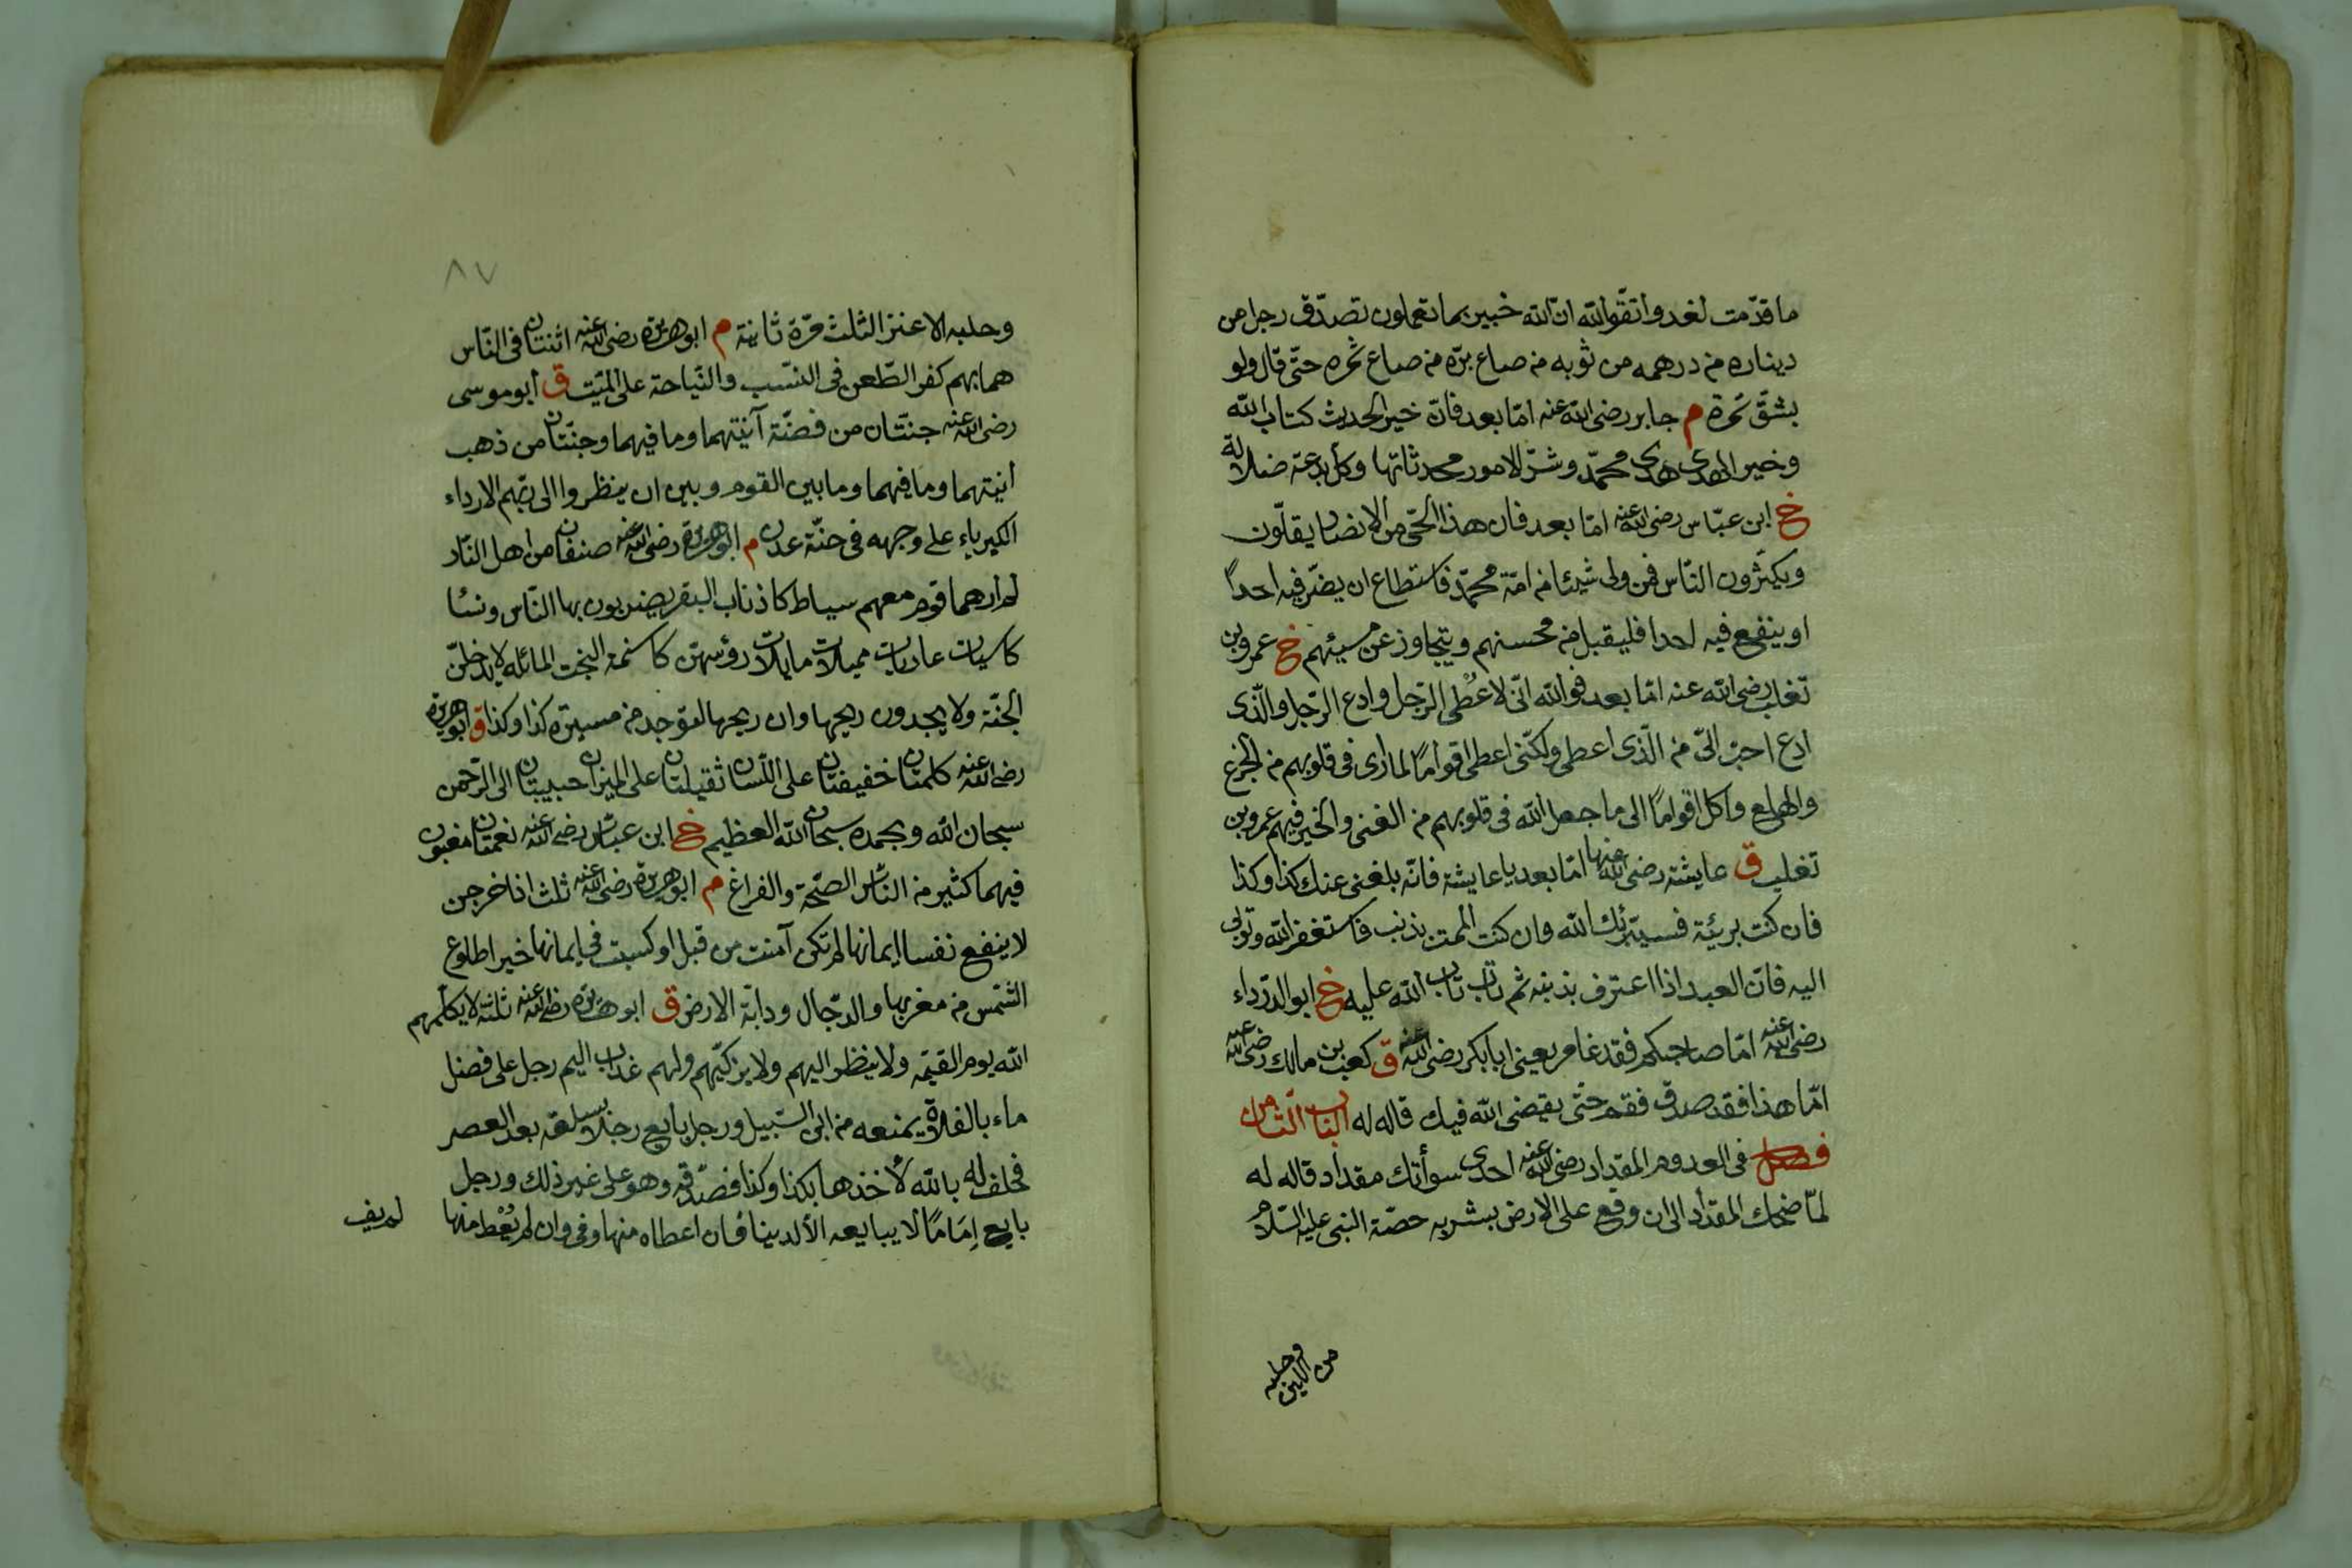 ما قدّمت لغد واتّقوا الله انّ الله خبير بما تعملون تصدّق رجل من
ديناره من درهمه من ثوبه من صاع برّه من صاع تمره حتّى قال ولو
بشقّ تمرة م جابر رضى الله عنه امّا بعد فانّ خير الحديث كتاب الله
وخير الهدى هدى محمّد وشرّ الامور محدثاتها وكلّ بدعة ضلالة
خ ابن عبّاس رضى الله عنه امّا بعد فان هذا الحّى من الانصار يقلّون
ويكثرون النّاس فمن ولى شيئا من امّة محمّد فاستطاع ان يضّر فيه احداً
او ينفع فيه احدا فليقبل من محسنهم ويتجاوز عن مسيئهم خ عمرو بن
تغلب رضى الله عنه امّا بعد فوالله انّى لاعُطى الرّجل وادع الرّجل والّذى
ادع احبّ الىّ من الّذى اعطى ولكنّى اعطى اقواماً لما ارى فى قلوبهم من الجزع
والهلع واكل اقواماً الى ما جعل الله فى قلوبهم من الغنى والخير فيهم عمرو بن
تغلب ق عايشة رضى الله عنها امّا بعد يا عايشة فانّه بلغنى عنك كذا وكذا
فان كنت بريئة فسيبّرئك الله وان كنت الممت بذنب فاستغفرالله وتوبى
اليه فانّ العبد اذا اعترف بذنبه ثم تاب تاب الله عليه خ ابو الدّرداء
رضى الله عنه امّا صاحبكم فقد غامر يعنى ابابكر رضى الله عنه ق كعب بن مالك رضى الله عنه
امّا هذا فقد صدق فقم حتّى يقضى الله فيك قاله له الباب الثّامن
فصل فى العدد م المقداد رضى الله عنه احدى سوأتك مقداد قاله له
لمّا ضحك المقداد الى ان وقع على الارض بشربه حصّة النبى عليه السّلام
من اللبن وحلبه
٨٧
وحلبه الاعنز الثلث مرّة ثانية م ابو هريرة رضى الله عنه اثنتان فى النّاس
هما بهم كفر الطّعن فى النسّب والنّياحة على الميّت ق ابو موسى
رضى الله عنه جنتّان من فضّة آنيتهما وما فيهما وجنّتان من ذهب
انيتهما وما فيهما وما بين القوم وبين ان ينظروا الى ربّهم الا رداء
الكبرياء على وجهه فى جنّة عدن م ابو هريرة رضى الله عنه صنفان من اهل النّار
لم ارهما قوم معهم سياط كاذناب البقر يضربون بها النّاس ونسا
كاسيات عاريات مميلات مايلات رؤسهن كاسنمة البخت المائله لا يدخلنّ
الجنّة ولا يجدون ريحها وان ريحها لتوجد من مسيرة كذا وكذا ق ابو هريرة
رضى الله عنه كلمتان خفيفتان على اللّسان ثقيلتان على الميزان حبيبتان الى الرّحمن
سبحان الله وبحمده سبحان الله العظيم خ ابن عبّاس رضى الله عنه نعمتان مغبون
فيهما كثير من النّاس الصّحّة والفراغ م ابو هريرة رضى الله عنه ثلث اذا خرجن
لا ينفع نفسا ايمانها لم تكن آمنت من قبل او كسبت فى ايمانها خيرا طلوع
الشّمس من مغربها والدّجال ودابّة الارض ق ابو هريرة رضى الله عنه ثلثة لا يكلّمهم
الله يوم القيمة ولا ينظر اليهم ولا يزكّيهم ولهم عذاب اليم رجل على فضل
ماء بالفلاة يمنعه من ابن السّبيل ورجل بايع رجلا بسلعة بعد العصر
فحلف له بالله لأخذها بكذا وكذا فصدّقه وهو على غير ذلك ورجل
بايع إمَامًا لا يبايعه الّا لدينا فان اعطاه منها وفى وان لم يُعْط منها
لم يف